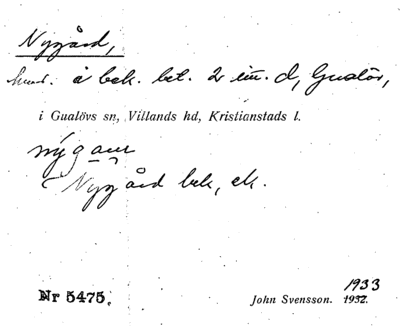 Nygård,
hmd. å bek. bet. 2 i nr. d, Gualöv,
i Gualövs sn, Villands hd, Kristianstads l.
nýgaur
Nygård bek, ek.
Nr 5475.
1933
John Svensson. 1932.